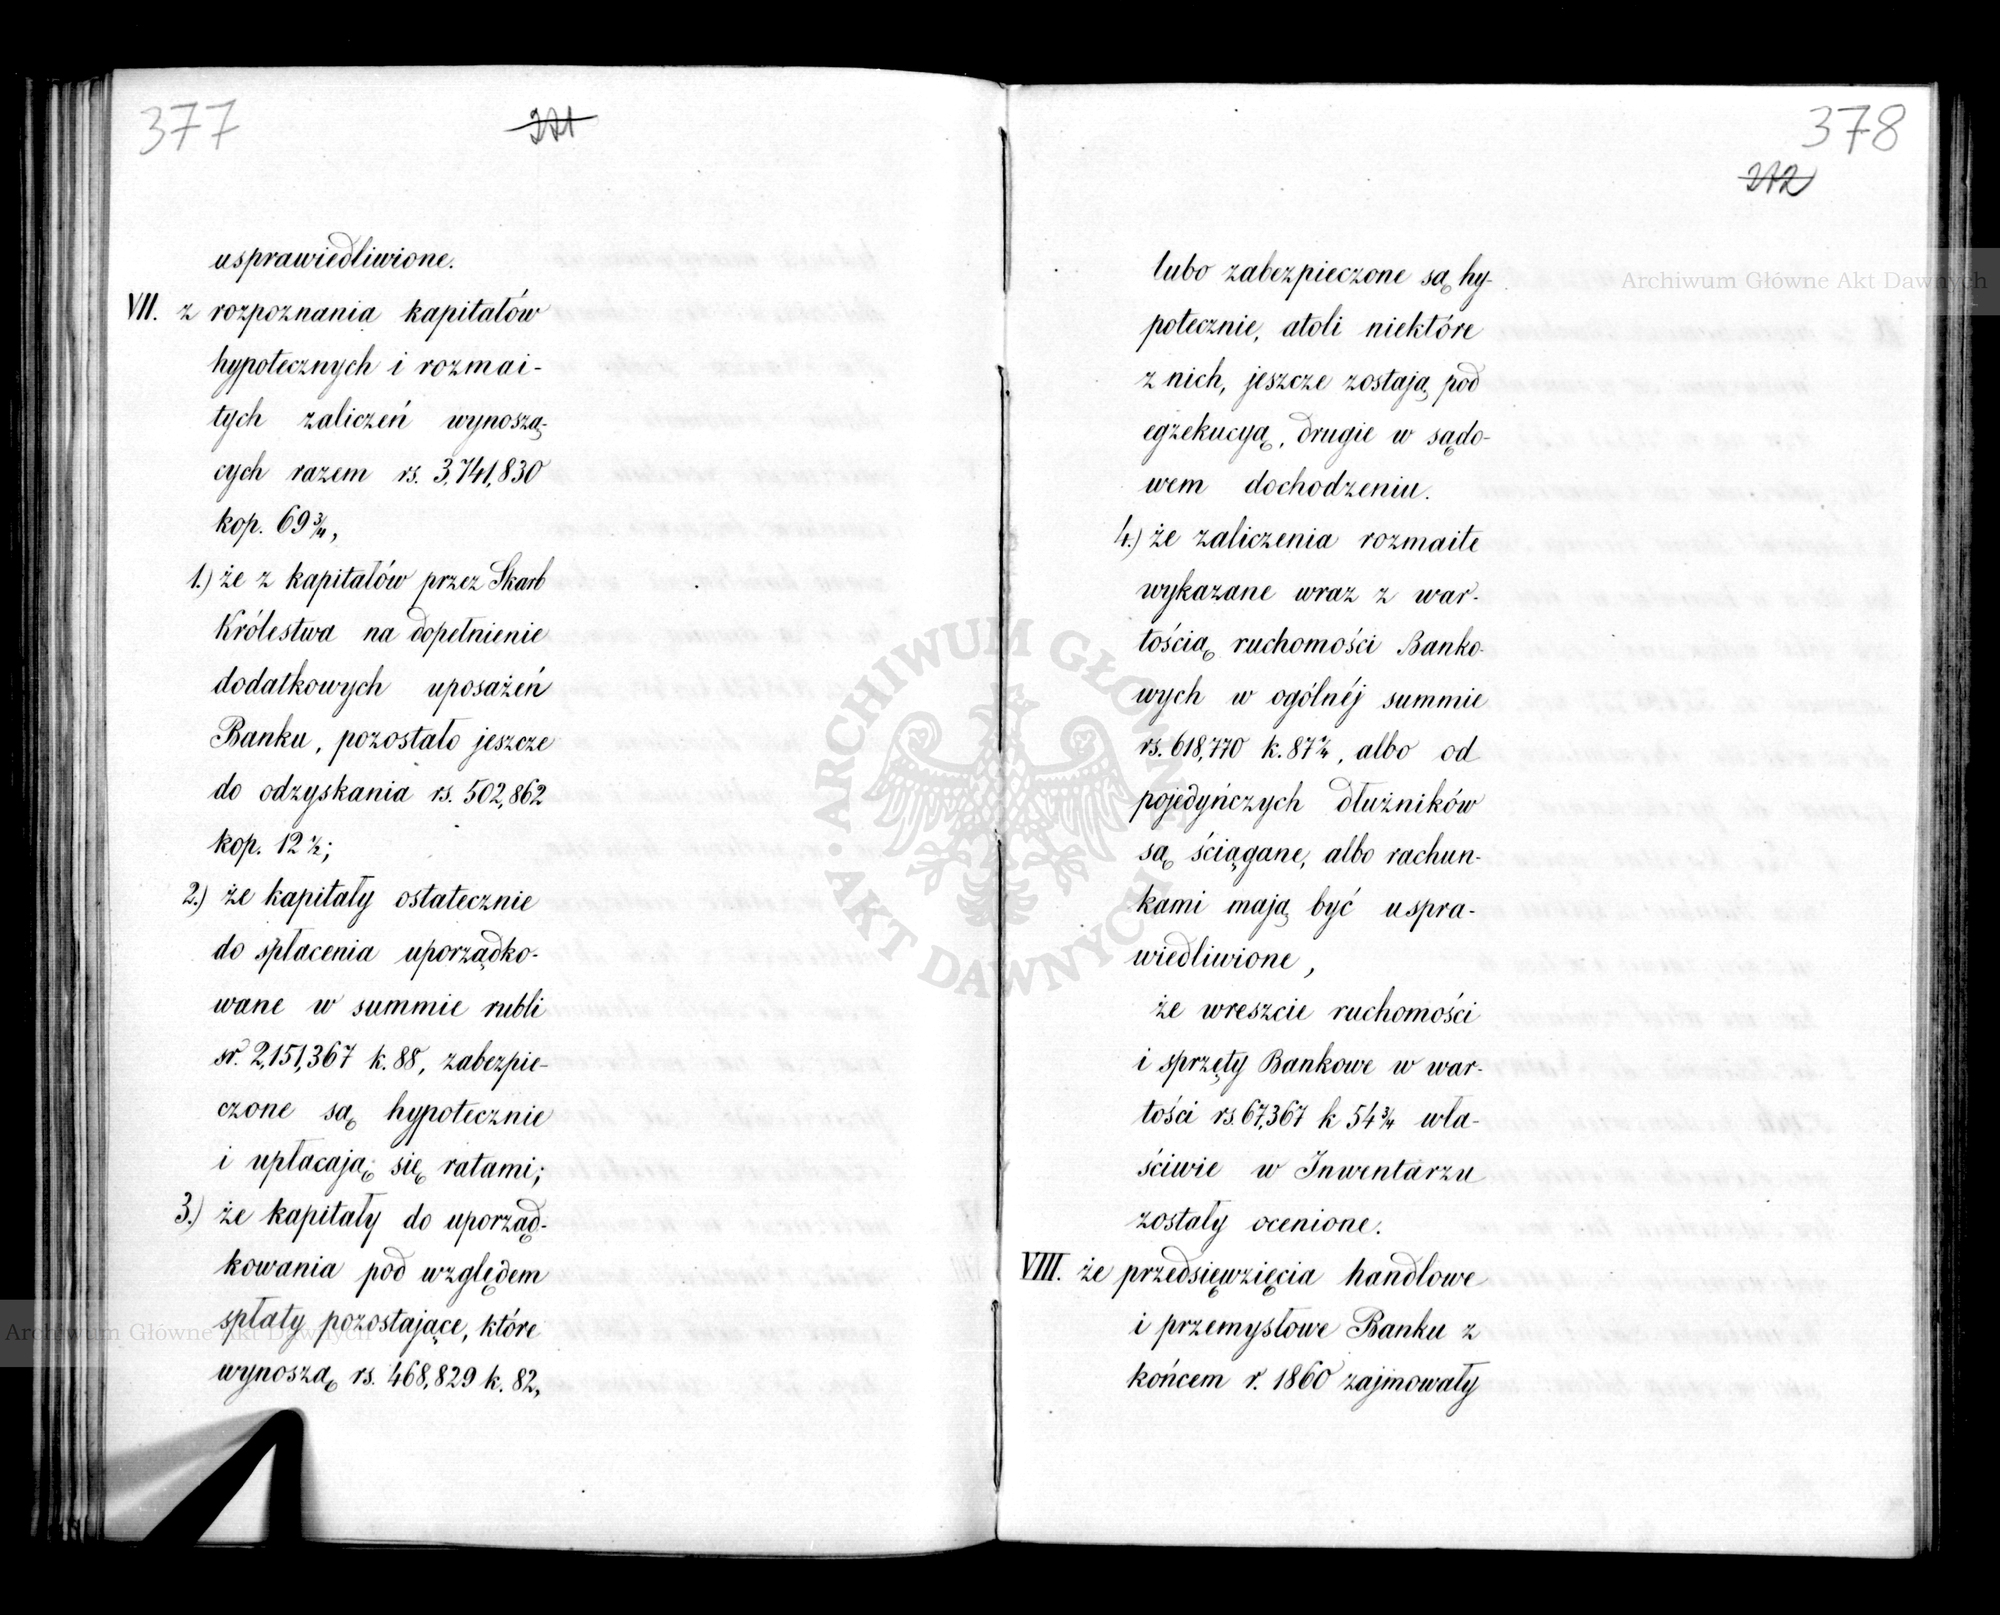 377
271
usprawiedliwione.
VII. z rozpoznania kapitałów
hypotecznych i rozmai-
tych zaliczeń wynoszą-
cych razem rs. 3,741,830
kop. 69 3/4,
1.) że z kapitałów przez Skarb
Królestwa na dopełnienie
dodatkowych uposażeń
Banku, pozostało jeszcze
do odzyskania rs. 502,862
kop. 12 1/2;
2.) że kapitały ostatecznie
do spłacenia uporządko-
wane w summie rubli
sr. 2,151,367 k. 88, zabezpie-
czone są hypotecznie
i upłacają się ratami;
3.) że kapitały do uporząd-
kowania pod względem
spłaty pozostające, które
wynoszą rs. 468,829 k. 82,
378
272
lubo zabezpieczone są hy-
potecznie, atoli niektóre
z nich, jeszcze zostają pod
egzekucyą, drugie w sądo-
wem dochodzeniu.
4.) że zaliczenia rozmaite
wykazane wraz z war-
tością ruchomości Banko-
wych w ogólnéj summie
rs. 618,770 k. 87 1/4, albo od
pojedyńczych dłużników
są ściągane, albo rachun-
kami mają być uspra-
wiedliwione,
że wreszcie ruchomości
i sprzęty Bankowe w war-
tości rs. 67,367 k 54 3/4 wła-
ściwie w Inwentarzu
zostały ocenione.
VIII. że przedsięwzięcia handlowe
i przemysłowe Banku z
końcem r. 1860 zajmowały
Archiwum Główne Akt Dawnych
ARCHIWUM GŁÓWNE · AKT DAWNYCH ·
Archiwum Główne Akt Dawnych